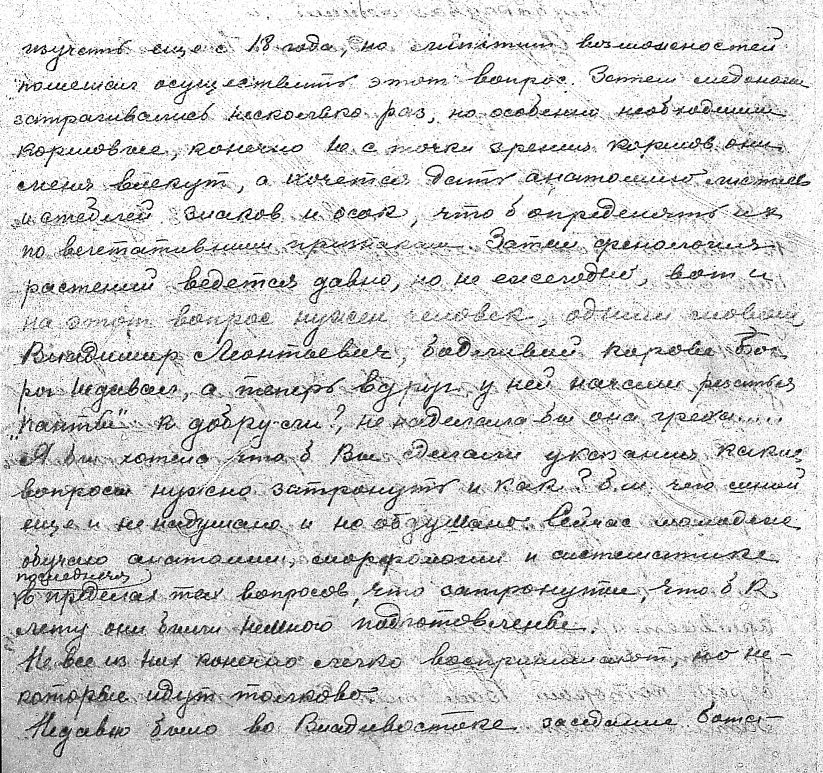 изучать еще с 18 года, но лимитии возможностей
помешал осуществить этот вопрос. Затем медоносы
затрагивались несколько раз, но особенно необходимы
кормовые, конечно не с точки зрения кормов они
меня влекут, а хочется дать анатомию листьев
и стеблей злаков и осок, что б определять их
по вегетативным признакам. Затем фенология
растений ведется давно, но не ежегодно, вот и
на этот вопрос нужен человек, одним словом,
Владимир Леонтьевич, бодливой корове бог
рог не давал, а теперь вдруг у ней начали резаться
"панты" к добру-ли?, не наделала бы она греха....
Я бы хотела что б Вы сделали указания какие
вопросы нужно затронуть и как? б.м. чего мной
еще и не надумано и не обдумано. Сейчас молодежь
обучаю анатомии, морфологии и систематике
последняя
в пределах тех вопросов, что затронуты, что б к
лету они были немного подготовлены.
Не все из них конечно легко воспринимают, но не-
которые идут толково
Недавно было во Владивостоке заседание бота-